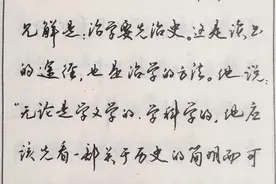 见解是:治学要先治史。这是读书
的途径,也是治学的方法。他说:
“无论是学文学的、学科学的,他应
该先看一部关于历史的简明而可